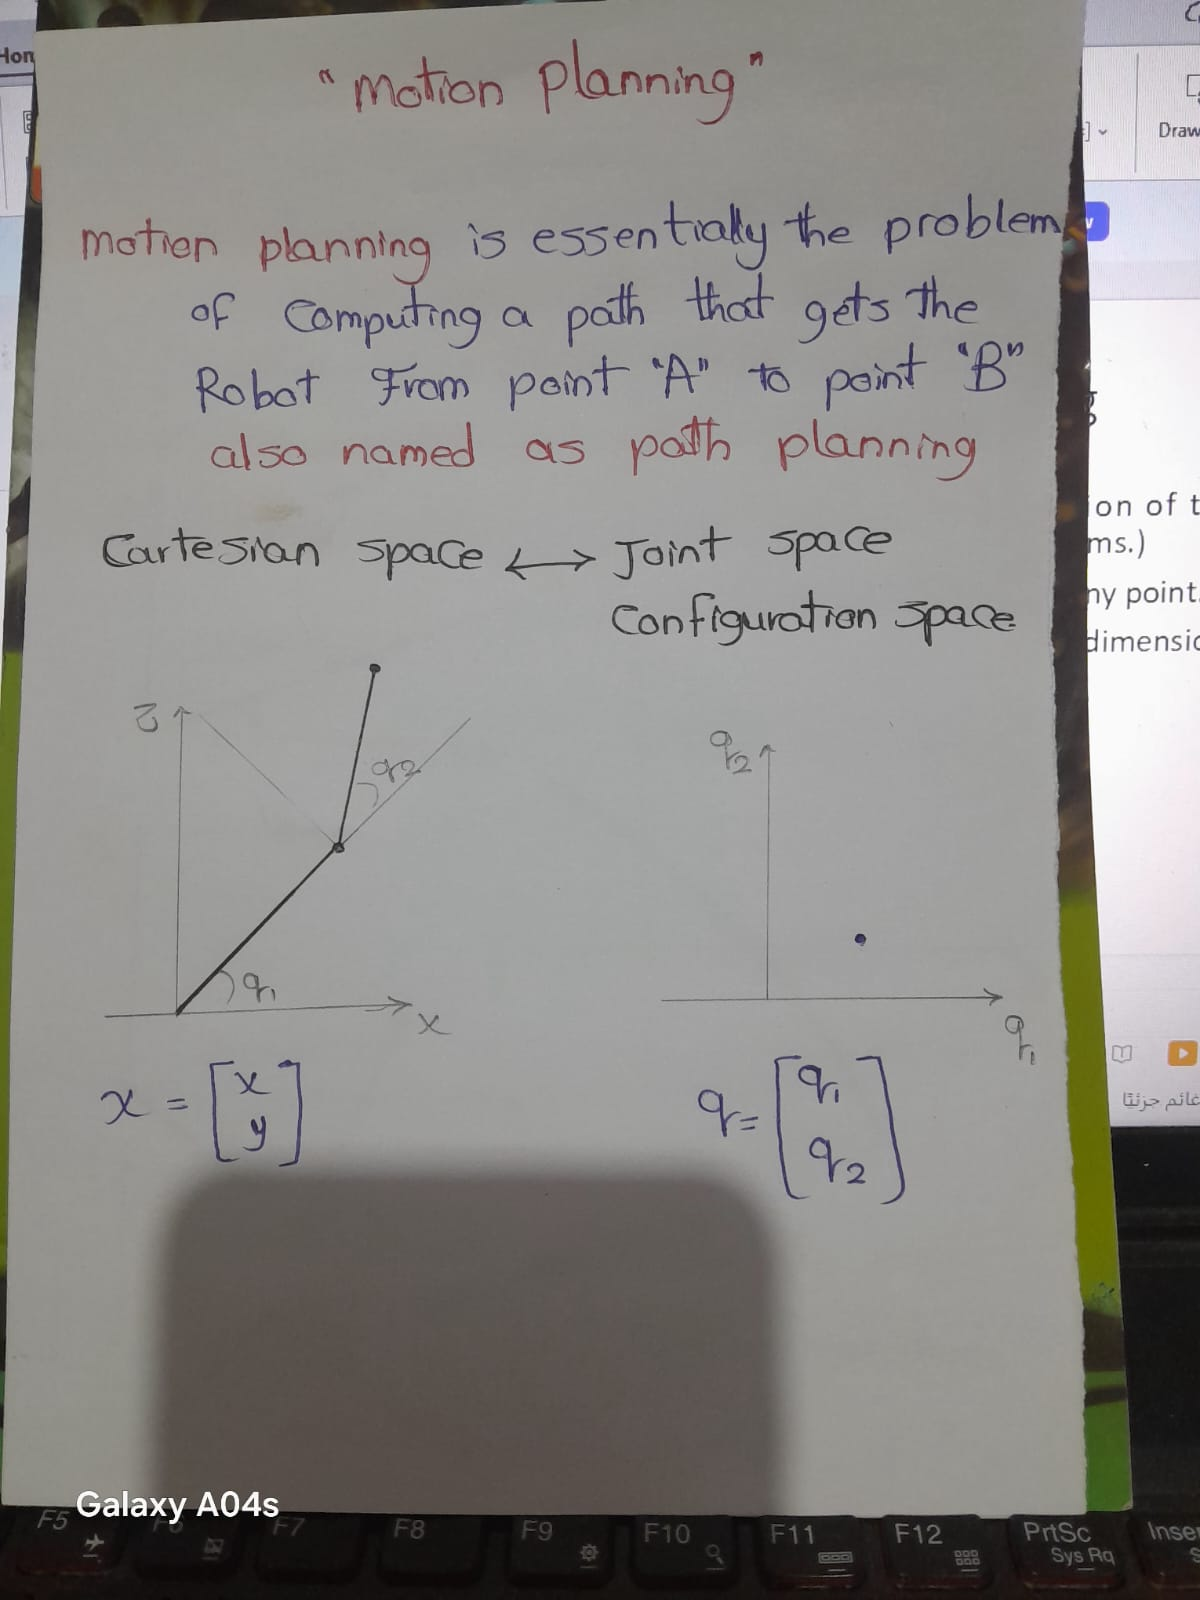 "Motion Planning"
motion planning is essentially the problem
of Computing a path that gets The
Robot From point "A" to point "B"
also named as path planning
Cartesian space ↔ Joint space
Configuration space
q2
q2
q1
x
q1
x = [x
y]
q = [q1
q2]
Hom
Draw
on of t
ms.)
ny point.
dimensio
Galaxy A04s
F5
F6
F7
F8
F9
F10
F11
F12
PrtSc
Sys Rq
Inse